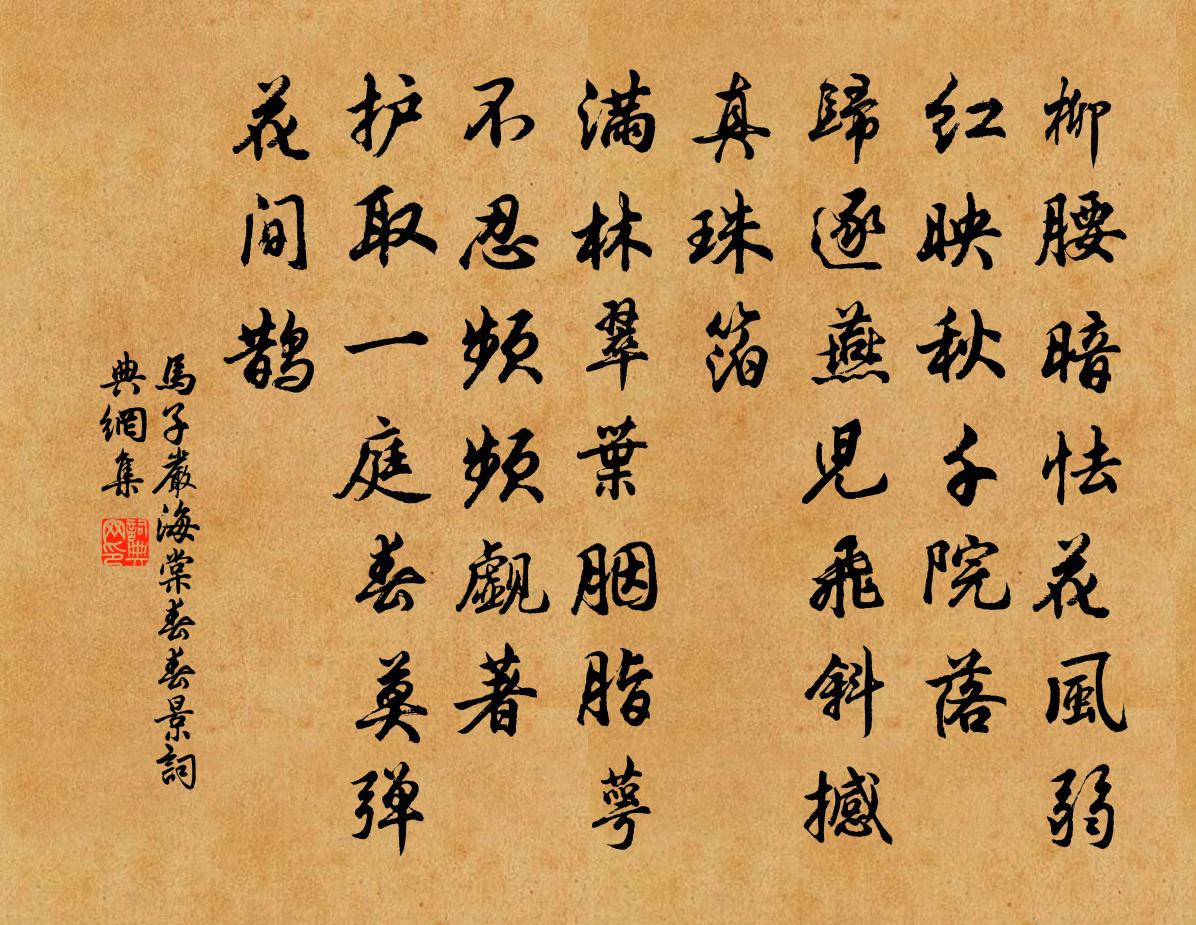 柳腰暗怯花風弱
红映秋千院落
歸逐燕児飛斜撼
真珠箔
满林翠葉胭脂萼
不忍頻頻覷著
护取一庭春莫弹
花间鹊
馬子嚴海棠春春景詞
典網集
詞典网印